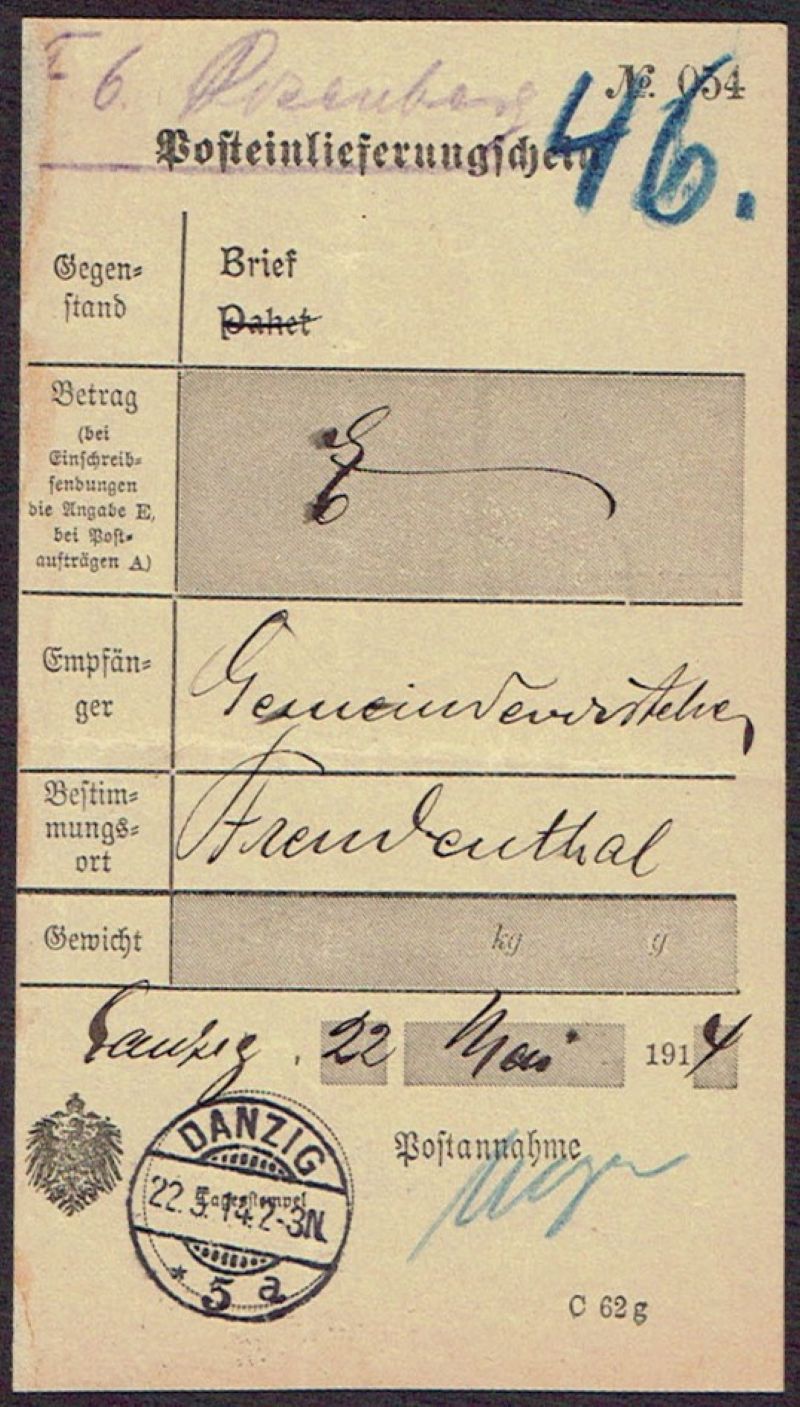 I 6. Rosenberg
№. 054
46.
Posteinlieferungschein
Gegen=
stand
Brief
Paket
Betrag
(bei
Einschreib=
sendungen
die Angabe E,
bei Post=
aufträgen A)
E
Empfän=
ger
Gemeindevorsteher
Bestim=
mungs=
ort
Freudenthal
Gewicht
kg g
Danzig, 22 Mai 1914
DANZIG
Tagesstempel
22.5.14.2-3N.
* 5 a
Postannahme
C 62g